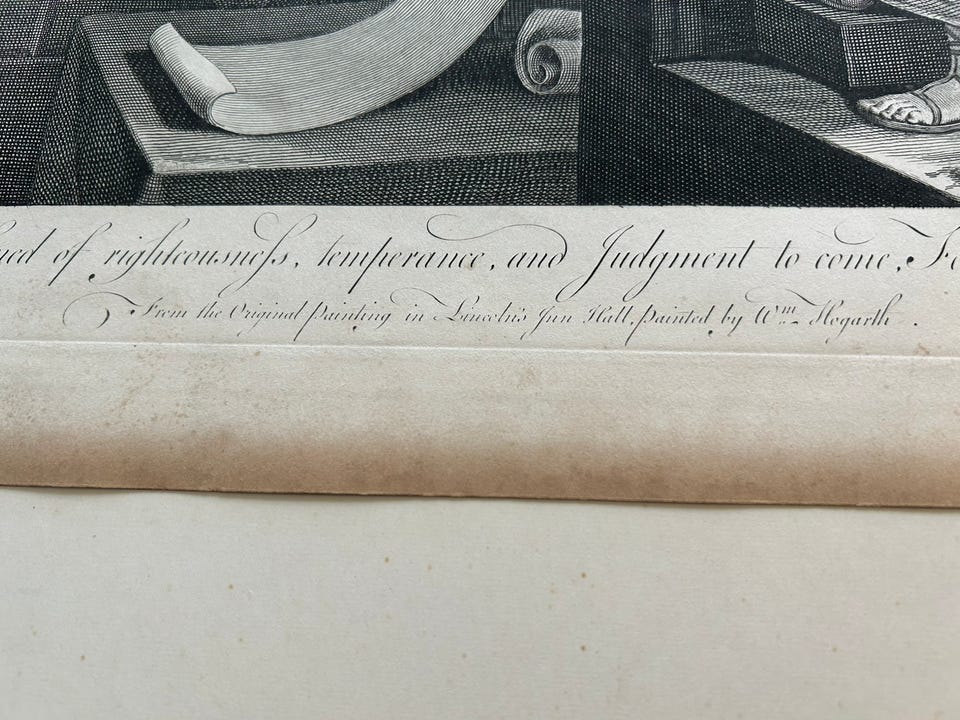 of righteousneſs, temperance, and Judgment to come,
From the Original Painting in Lincoln's Inn Hall, painted by Wm. Hogarth.